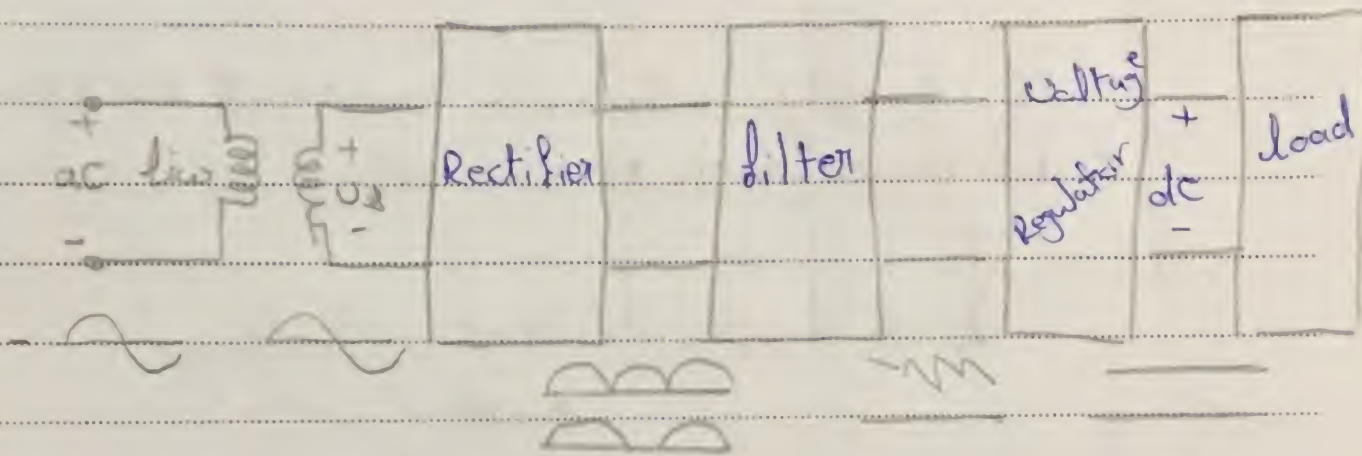 +
ac line
-
+
υs
-
Rectifier
filter
voltage
Regulator
+
dc
-
load